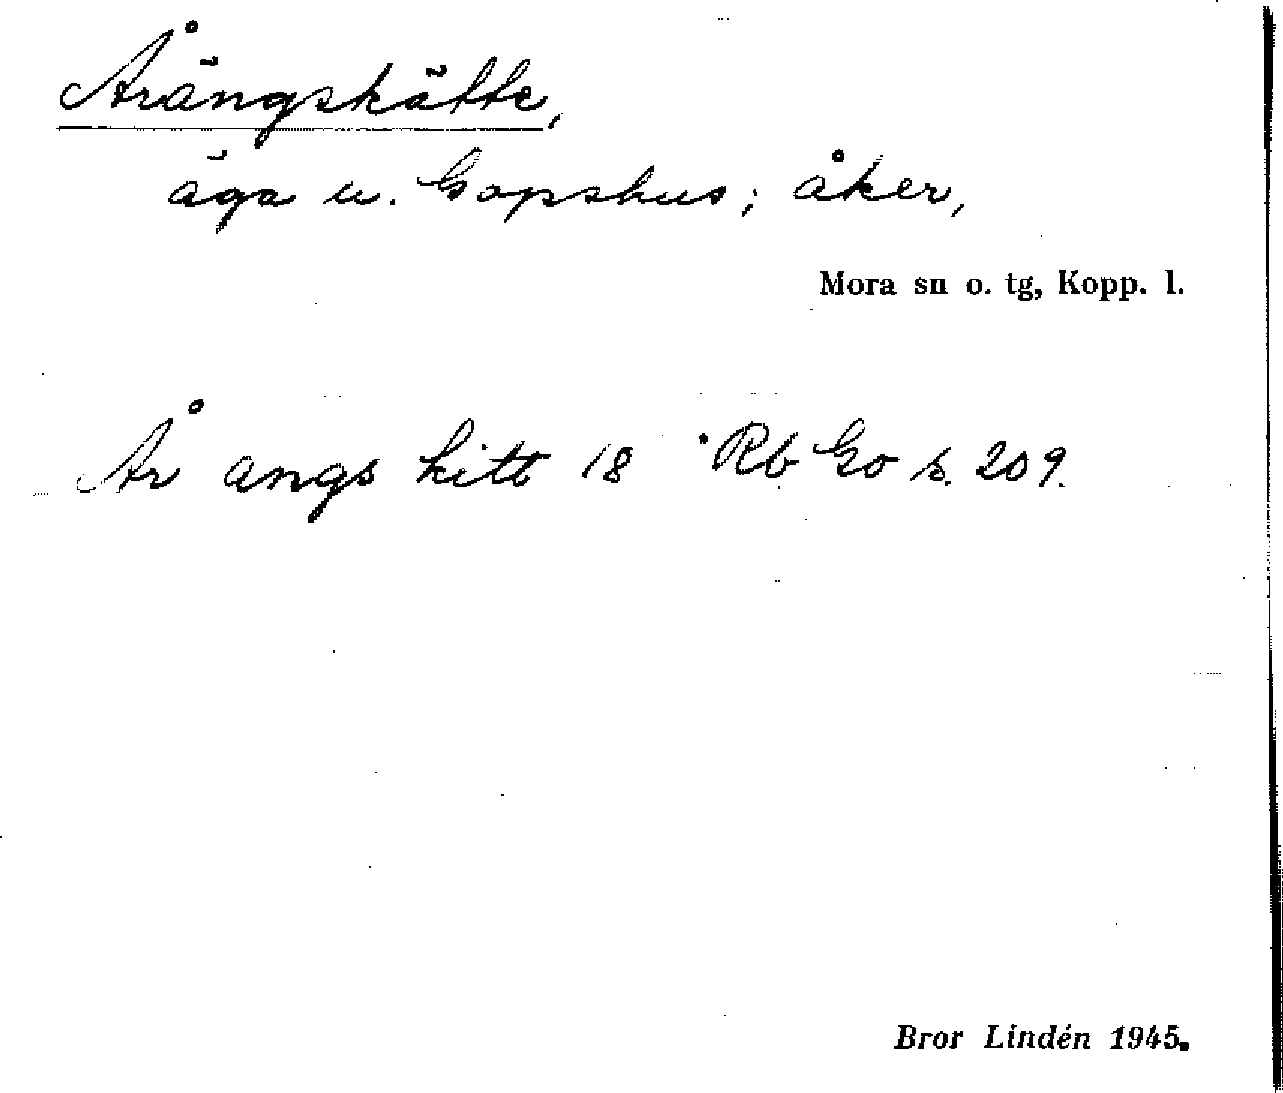 Årängskätte,
äga u. Gopshus; åker,
Mora sn o. tg, Kopp. l.
År angs kitt 18 Rb Go s. 209.
Bror Lindén 1945.